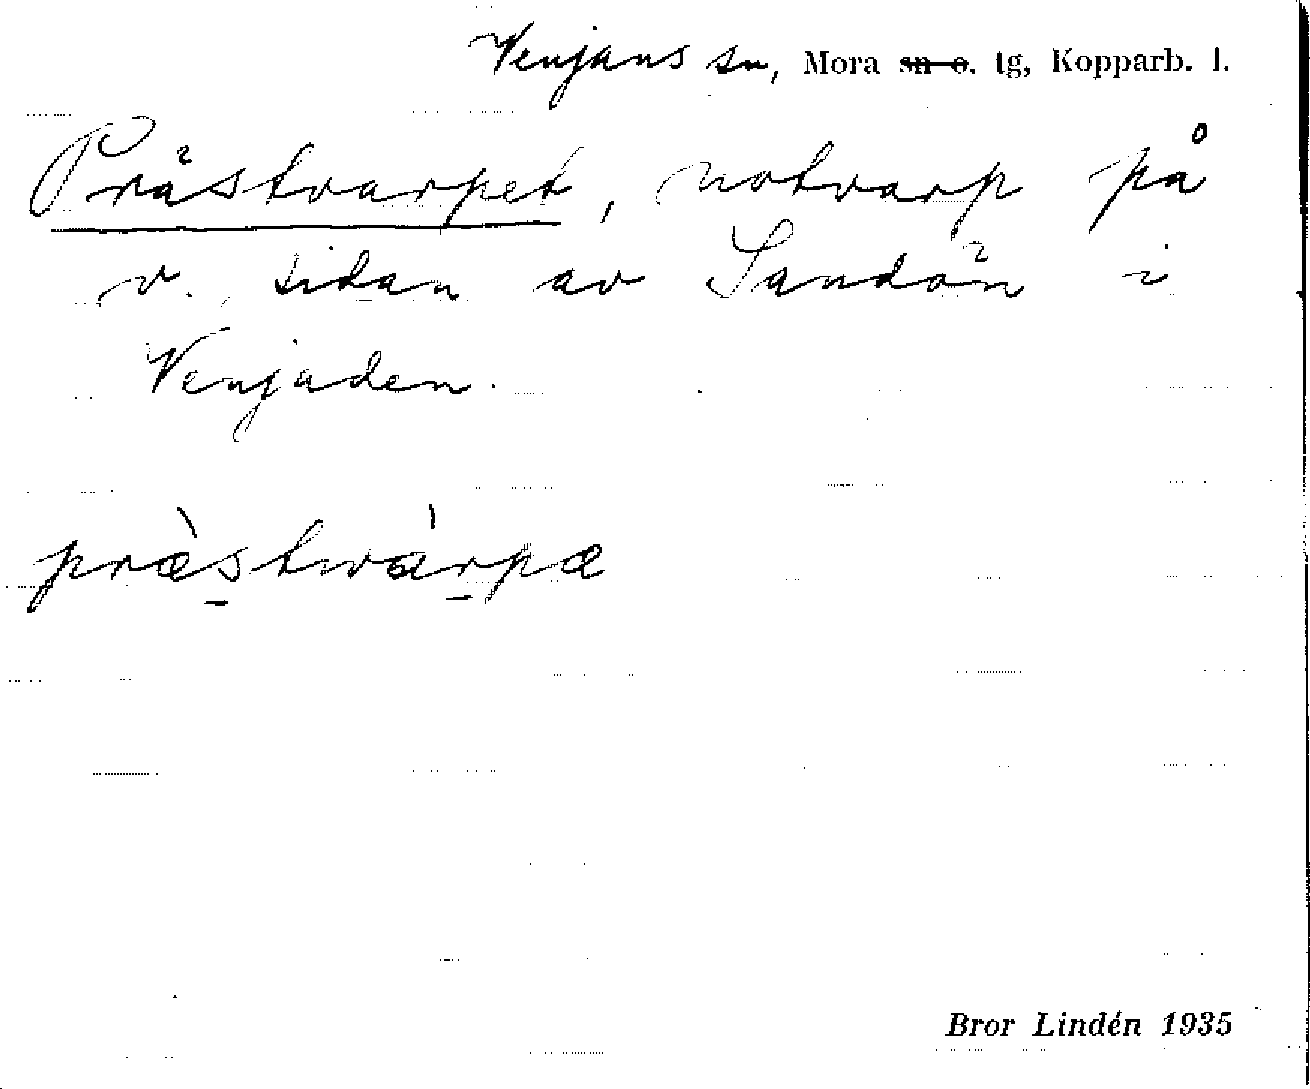 Venjans sn, Mora sn o. tg, Kopparb. l.
Prästvarpet, notvarp på
v. sidan av Sandön i
Venjaden.
præ̀stwárpæ
Bror Lindén 1935